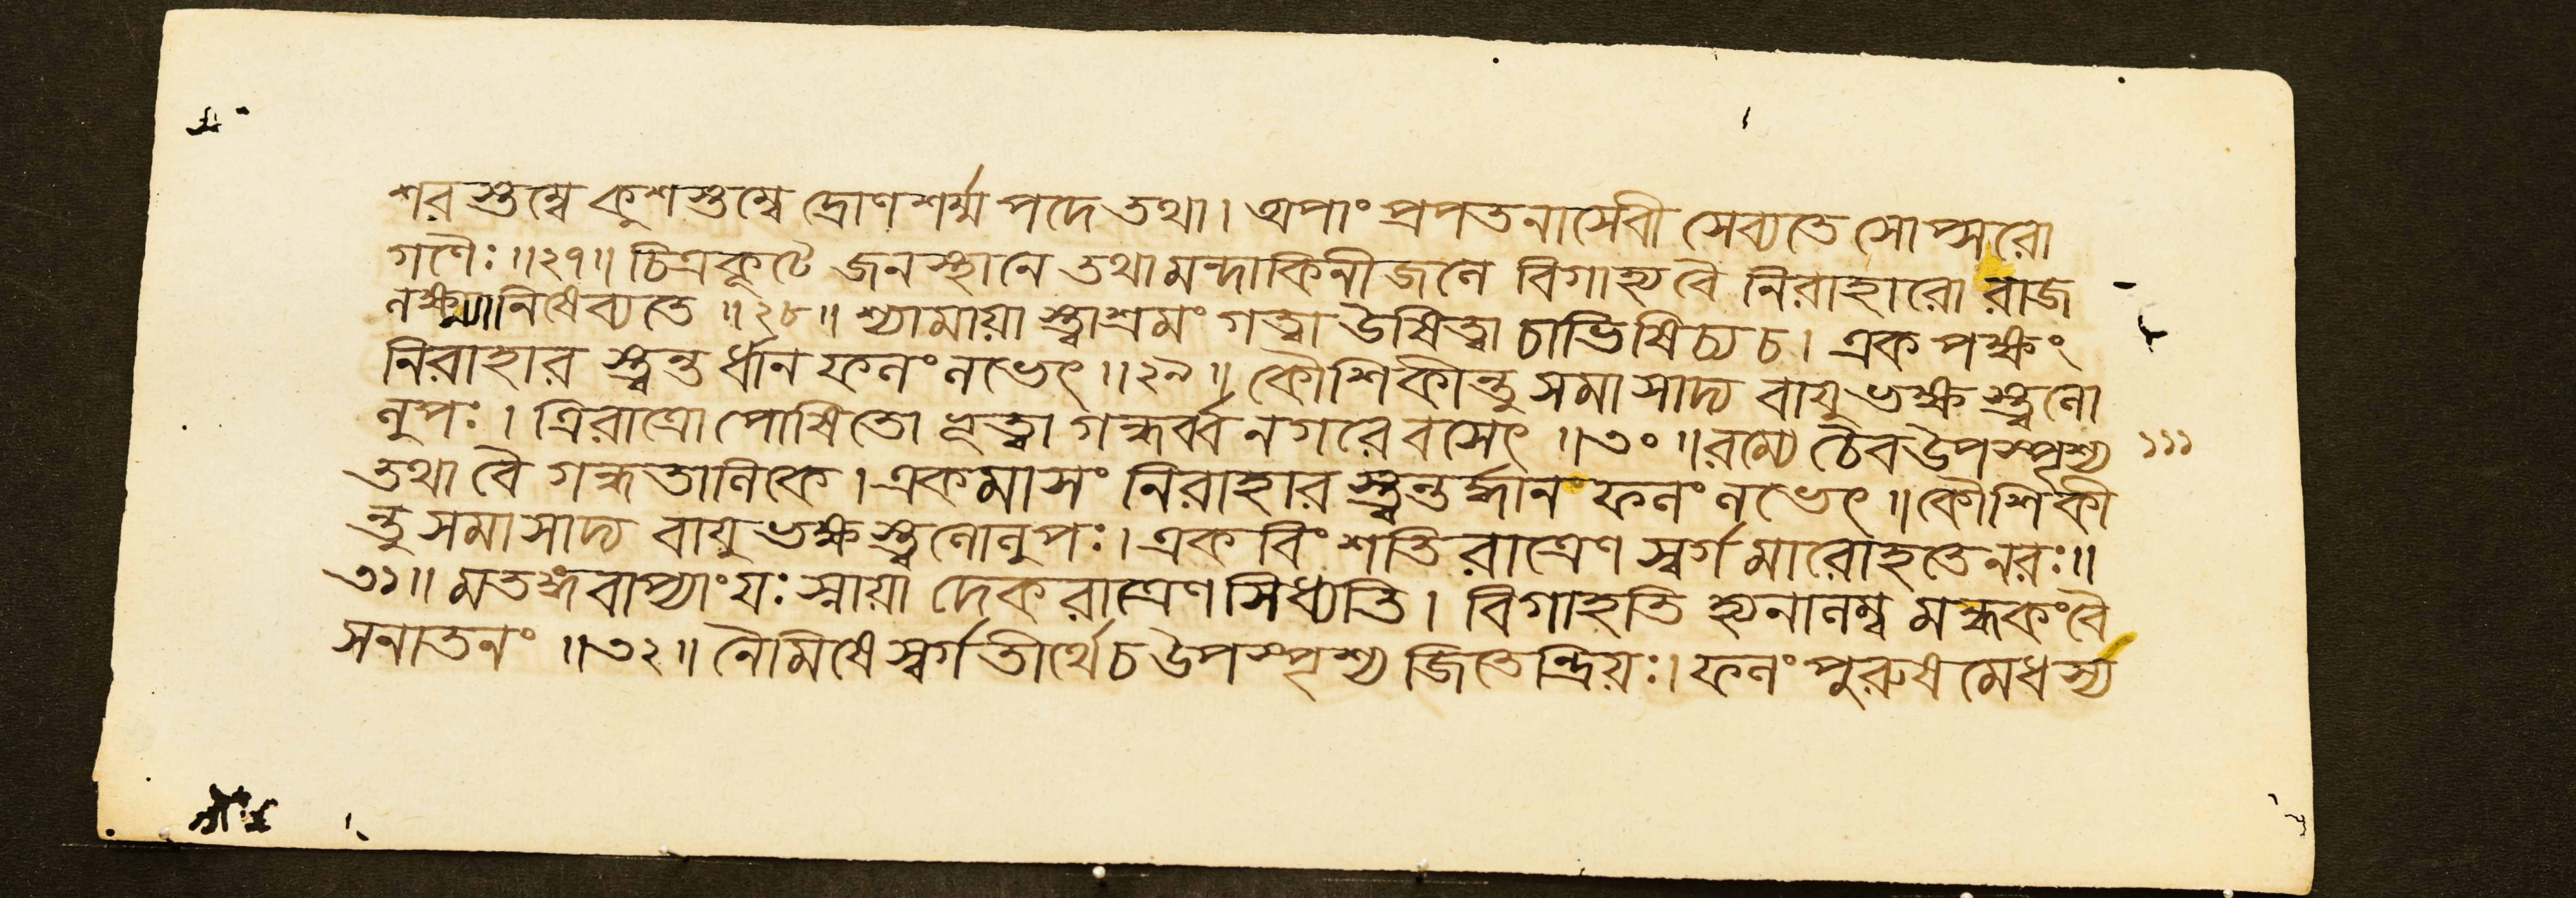 শরস্তুম্বে কুশস্তুম্বে দ্রোণশর্ম্মপদে তথা। অপাং প্রপতনাসেবী সেব্যতে সোপ্সরো
গণৈঃ॥২৭॥ চিত্রকূটে জনস্থানে তথা মন্দাকিনীজলে বিগাহ্য বৈ নিরাহারো রাজ
লক্ষ্ম্যা নিষেব্যতে ॥২৮॥ শ্যামায়াস্ত্বাশ্রমং গত্বা উষিত্বা চাভিষিচ্য চ। একপক্ষং
নিরাহারস্ত্বন্তর্ধান ফলং লভেৎ॥২৯॥ কৌশিকীন্তু সমাসাদ্য বায়ুভক্ষস্ত্বলো
লুপঃ। ত্রিরাত্রোপোষিতো ভূত্বা গন্ধর্ব্বনগরে বসেৎ ॥৩০॥ রম্যে চৈব উপস্পৃশ্য
১১১
তথা বৈ গন্ধতালিকে। একমাসং নিরাহারস্ত্বন্তর্দ্ধান ফলং লভেৎ॥ কৌশিকী
ন্তু সমাসাদ্য বায়ুভক্ষস্ত্বলোলুপঃ। একবিংশতিরাত্রেণ স্বর্গমারোহতে নরঃ॥
৩১॥ মতঙ্গবাপ্যাং যঃ স্নায়াদেকরাত্রেণ সিধ্যতি। বিগাহতি হ্যনালম্ব মন্ধকং বৈ
সনাতনং ॥৩২॥ নৈমিষে স্বর্গতীর্থে চ উপস্পৃশ্য জিতেন্দ্রিয়ঃ। ফলং পুরুষমেধস্য